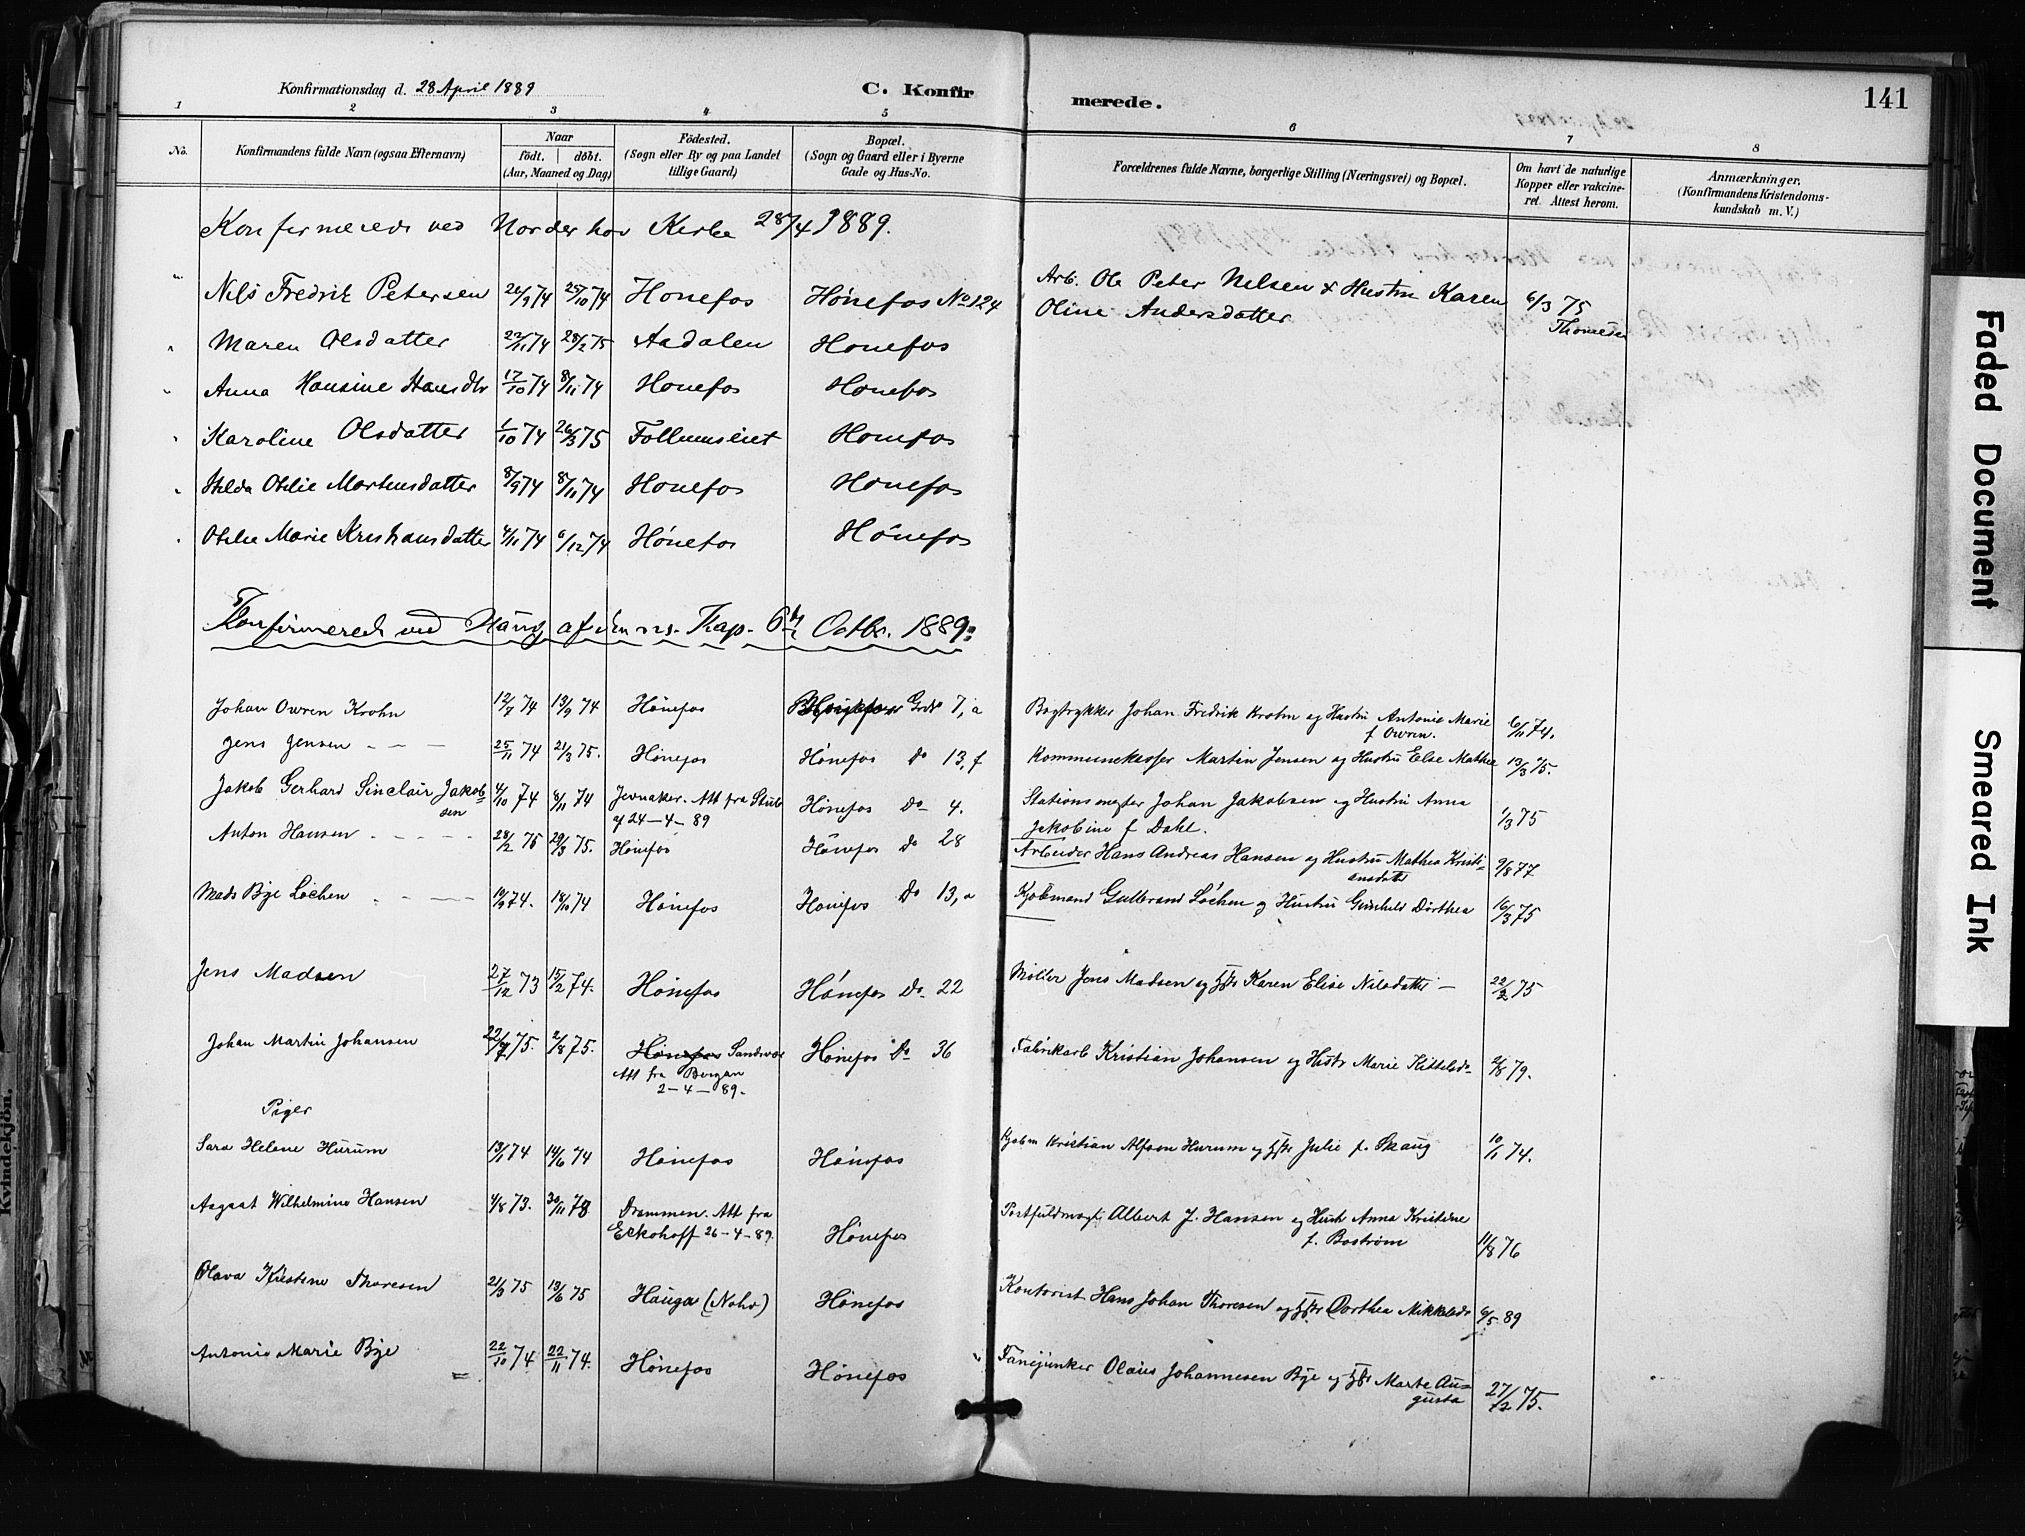 Konfirmationsdag d. 28 April 1889
C. Konfirmerede.
141
1 2 3 4 5 6 7 8
No.
Konfirmandens fulde Navn (ogsaa Efternavn)
Naar
födt. | döbt.
(Aar, Maaned og Dag)
Födested.
(Sogn eller By og paa Landet
tillige Gaard)
Bopæl.
(Sogn og Gaard eller i Byerne
Gade og Hus-No.
Forældrenes fulde Navne, borgerlige Stilling (Næringsvei) og Bopæl.
Om havt de naturlige
Kopper eller vakcine-
ret. Attest herom.
Anmærkninger.
(Konfirmandens Kristendoms-
kundskab m. V.)
Konfirmerede ved Norderhov Kirke 28/4 1889.
Nils Fredrik Petersen 26/9 74 25/10 74 Hønefos Hønefos No 124 Arb. Ole Peter Nilsen & Hustru Karen 6/3 75
Oline Andersdatter Thomesen
Maren Olsdatter 22/11 74 28/2 75 Aadalen Hønefos
Anna Hansine Hansdtr 17/10 74 8/11 74 Hønefos Hønefos
Karoline Olsdatter 1/10 74 26/3 75 Follumseiet Hønefos
Hilda Otilie Mortensdatter 8/9 74 8/11 74 Hønefos Hønefos
Otilie Marie Kristiansdatter 4/11 74 6/12 74 Hønefos Hønefos
Konfirmerede ved Haug af den res. Kap. 6te Octbr. 1889:
Johan Owren Krohn 12/7 74 13/9 74 Hönefos Grds 7, a Bogtrykker Johan Fredrik Krohn og Hustru Antonie Marie 6/11 74.
f. Owren.
Jens Jensen 25/11 74 21/3 75. Hönefos Hönefos Do 13, f Kommunekasser Martin Jensen og Hustru Else Mathea 13/3 75.
Jakob Gerhard Sinclair Jakob- 4/10 74 8/11 74 Jevnaker. Att fra Stub Hönefos Do 4. Stationsmester Johan Jakobsen og Hustru Anna 1/3 75
sen af 24-4-89 Jakobine f Dahl.
Anton Hansen 28/2 75 29/3 75. Hönefos Hönefos Do 28 Arbeider Hans Andreas Hansen og Hustru Mathea Kristi- 9/8 77
ansdatter
Mads Bye Löchen 19/9 74. 18/10 74 Hönefos Hönefos Do 13, a Kjöbmand Gulbrand Löchen og Hustru Gunhild Dorthea 16/3 75
Jens Madsen 27/12 73 15/2 74. Hönefos Hönefos Do 22 Möller Jens Madsen og Hstr Karen Elise Nilsdatter 22/2 75
Johan Martin Johansen 22/7 75. 2/8 75. Hönefos Sandsvær Hönefos Do 36 Fabrikarb Kristian Johansen og Hustr Marie Kittelsd. 2/8 79.
Att fra Bergan
2-4-89.
Piger
Sara Helene Hurum 13/1 74 14/6 74 Hönefos Hönefos Kjobm Kristian Alfson Hurum og Hstr Julie f. Skaug 10/11 74.
Aagaat Wilhelmine Hansen 4/8 73. 30/11 78 Drammen. Att fra Hönefos Postfuldmægt Albert J. Hansen og Hust Anna Kristine 11/8 76
Eckohoff 26-4-89. f. Boström
Olava Kristine Thoresen 21/3 75 13/6 75 Hauga (Nohv) Hönefos Kontorist Hans Johan Thoresen og Hstr Dorthea Mikkelsdr 6/5 89
Antonie Marie Bye 22/10 74 22/11 74. Hönefos Hönefos Fanejunker Olaus Johannesen Bye og Hstr Marte Au- 27/12 75.
gusta
Faded Document
Smeared Ink
Kvindekjön.